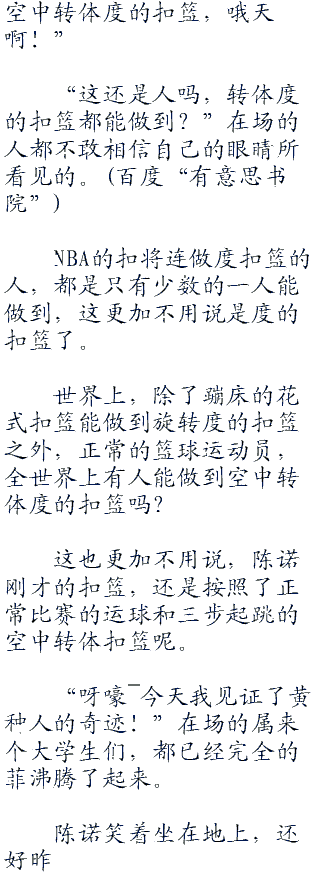 空中转体度的扣篮，哦天
啊！”
“这还是人吗，转体度
的扣篮都能做到？”在场的
人都不敢相信自己的眼睛所
看见的。(百度“有意思书
院”)
NBA的扣将连做度扣篮的
人，都是只有少数的一人能
做到，这更加不用说是度的
扣篮了。
世界上，除了蹦床的花
式扣篮能做到旋转度的扣篮
之外，正常的篮球运动员，
全世界上有人能做到空中转
体度的扣篮吗？
这也更加不用说，陈诺
刚才的扣篮，还是按照了正
常比赛的运球和三步起跳的
空中转体扣篮呢。
“呀嚎‾今天我见证了黄
种人的奇迹！”在场的属来
个大学生们，都已经完全的
菲沸腾了起来。
陈诺笑着坐在地上，还
好昨